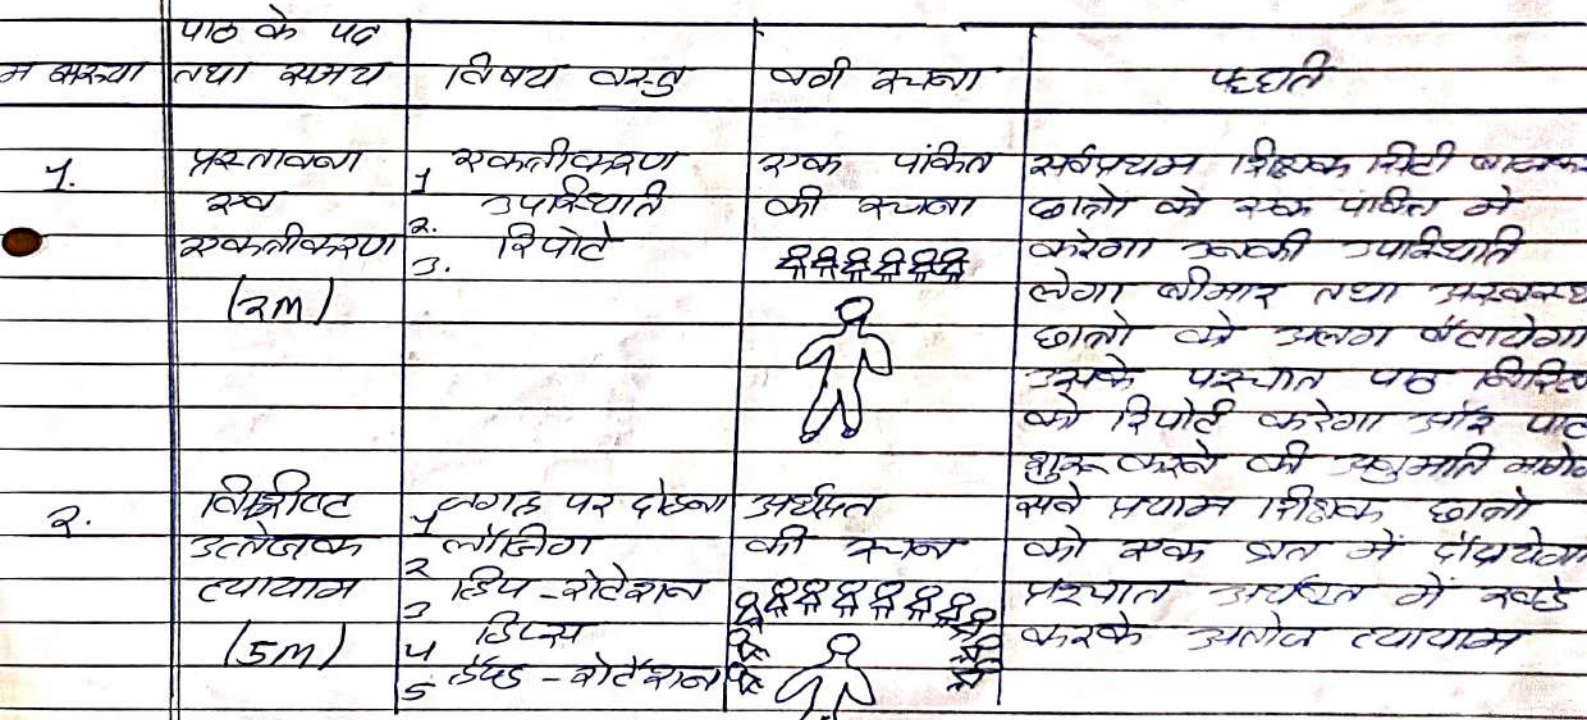 पाठ के पद
तथा समय
विषय वस्तु
वर्ग रचना
पद्धति
1.
प्रस्तावना
एव
एकत्रीकरण
(2M)
1 एकत्रीकरण
2. उपस्थिति
3. रिपोर्ट
एक पंक्ति
की रचना
सर्वप्रथम शिक्षक सिटी
छात्रो को एक पंक्ति मे
करेगा उनकी उपस्थिति
लेगा बीमार तथा अस्वस्थ
छात्रो को अलग बैठायेगा
उसके पश्चात पाठ
को रिपोर्ट करेगा और पाठ
शुरू करने की अनुमति
2.
विशिष्ट
उत्तेजक
व्यायाम
(5M)
1 जगह पर दोडना
2 लॉजिंग
3 हिप - रोटेशन
4 डिप्स
5 हैण्ड - रोटेशन
अर्धव्रत
की रचना
सर्व प्रथाम शिक्षक छात्रो
को एक व्रत में
पश्चात अर्धव्रत में खडे
करके व्यायाम